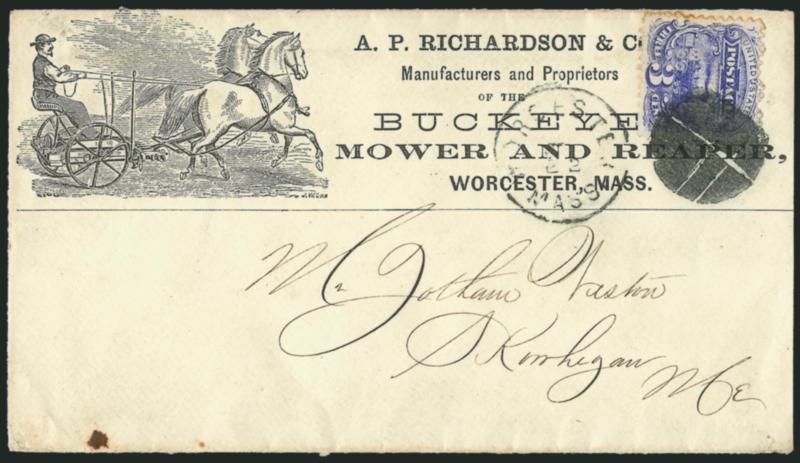 A. P. RICHARDSON & C
Manufacturers and Proprietors
OF THE
BUCKEYE
MOWER AND REAPER,
WORCESTER, MASS.
WORCESTER
22
MASS
UNITED STATES
POSTAGE
3
Mr Jotham Weston
Skowhegan
Me